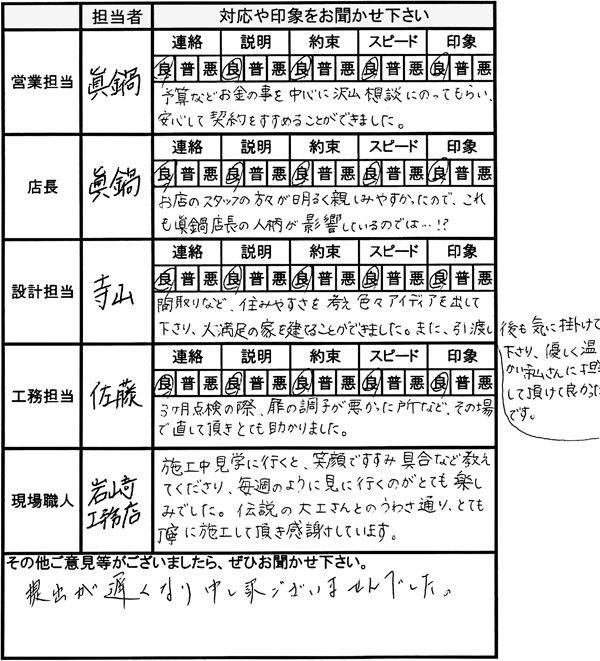 担当者 対応や印象をお聞かせ下さい
営業担当 眞鍋
連絡 説明 約束 スピード 印象
良 普 悪 良 普 悪 良 普 悪 良 普 悪 良 普 悪
予算などお金の事を中心に沢山想談にのってもらい、
安心して契約をすすめることができました。
店長 眞鍋
連絡 説明 約束 スピード 印象
良 普 悪 良 普 悪 良 普 悪 良 普 悪 良 普 悪
お店のスタッフの方々が明るく親しみやすかったので、これ
も眞鍋店長の人柄が影響しているのでは…!?
設計担当 寺山
連絡 説明 約束 スピード 印象
良 普 悪 良 普 悪 良 普 悪 良 普 悪 良 普 悪
間取りなど、住みやすさを考え色々アイディアを出して
下さり、大満足の家を建てることができました。また、引渡し
後も気に掛けて
下さり、優しく温
かい寺山さんに担
して頂けて良かった
です。
工務担当 佐藤
連絡 説明 約束 スピード 印象
良 普 悪 良 普 悪 良 普 悪 良 普 悪 良 普 悪
3ヶ月点検の際、扉の調子が悪かった所など、その場
で直して頂きとても助かりました。
現場職人 岩崎
工務店
施工中見学に行くと、笑顔ですすみ具合など教え
てくださり、毎週のように見に行くのがとても楽し
みでした。伝説の大工さんとのうわさ通り、とても
丁寧に施工して頂き感謝しています。
その他ご意見等がございましたら、ぜひお聞かせ下さい。
提出が遅くなり申し訳ございませんでした。